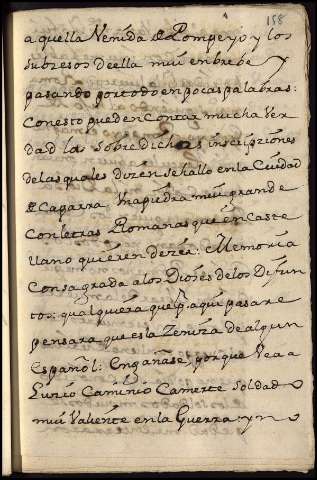 158
aquella Venida de Pompeyo y los
subcesos de ella mui en brebe y
pasando por todo en pocas palabras:
Con esto pueden Contar mucha Ver
dad las sobredichas inscripziones
de las quales dizen se hallo en la Ciudad
de Caparra Vna piedra mui grande
Con letras Romanas que en Caste
llano quieren dezir: Memoria
Consagrada a los Dioses de los Difun
tos: qualquiera que p.r aqui pasare
pensara que es la Zeniza de algun
Español: Engañase, porque Vea a
Luzio Caminio Camerte Soldado
mui Valiente en la Guerra: y no